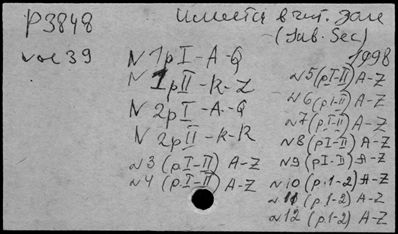 P3848
Имеется в чит. зале
(Sub. Sec)
vol 39
1998
N 1 pI-A-Q
N 1 pII-R-Z
N 2 pI-A-Q
N 2 pII-R-R
N3 (pI-II) A-Z
N4 (p.I-II) A-Z
N5 (pI-II) A-Z
N6 (pI-II) A-Z
N7 (p.I-II) A-Z
N8 (pI-II) A-Z
N9 (pI-II) A-Z
N10 (p.1-2) A-Z
N11 (p.1-2) A-Z
N12 (p.1-2) A-Z